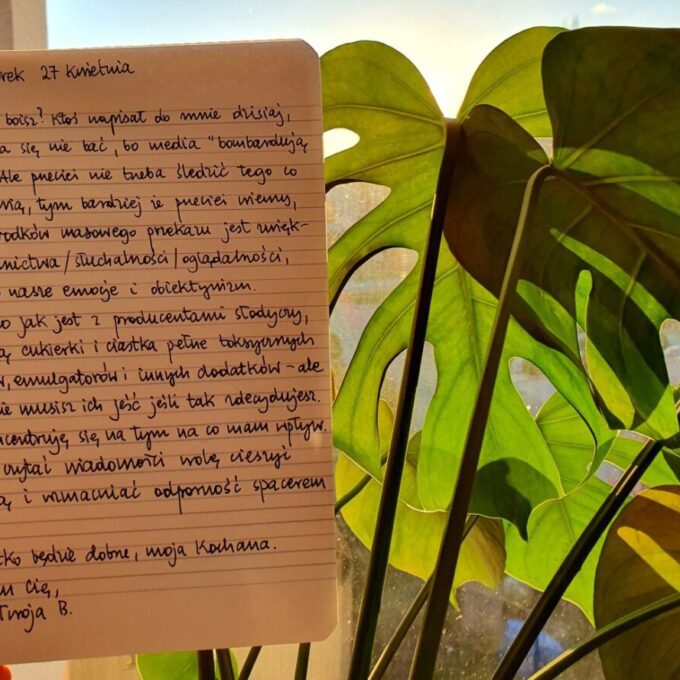 rek 27 kwietnia
boisz? Ktoś napisał do mnie dzisiaj,
a się nie bać, bo media "bombardują
Ale przecież nie trzeba śledzić tego co
ią, tym bardziej że przecież wiemy,
rodków masowego przekazu jest zwięk-
nictwa/słuchalności/oglądalności,
o nasze emocje i obiektywizm.
o jak jest z producentami słodyczy,
ą cukierki i ciastka pełne toksycznych
w, emulgatorów i innych dodatków - ale
ie musisz ich jeść jeśli tak zdecydujesz.
centruję się na tym na co mam wpływ.
czytać wiadomości wolę cieszyć
ą i wzmacniać odporność spacerem
tko będzie dobrze, moja Kochana.
m Cię,
Twoja B.